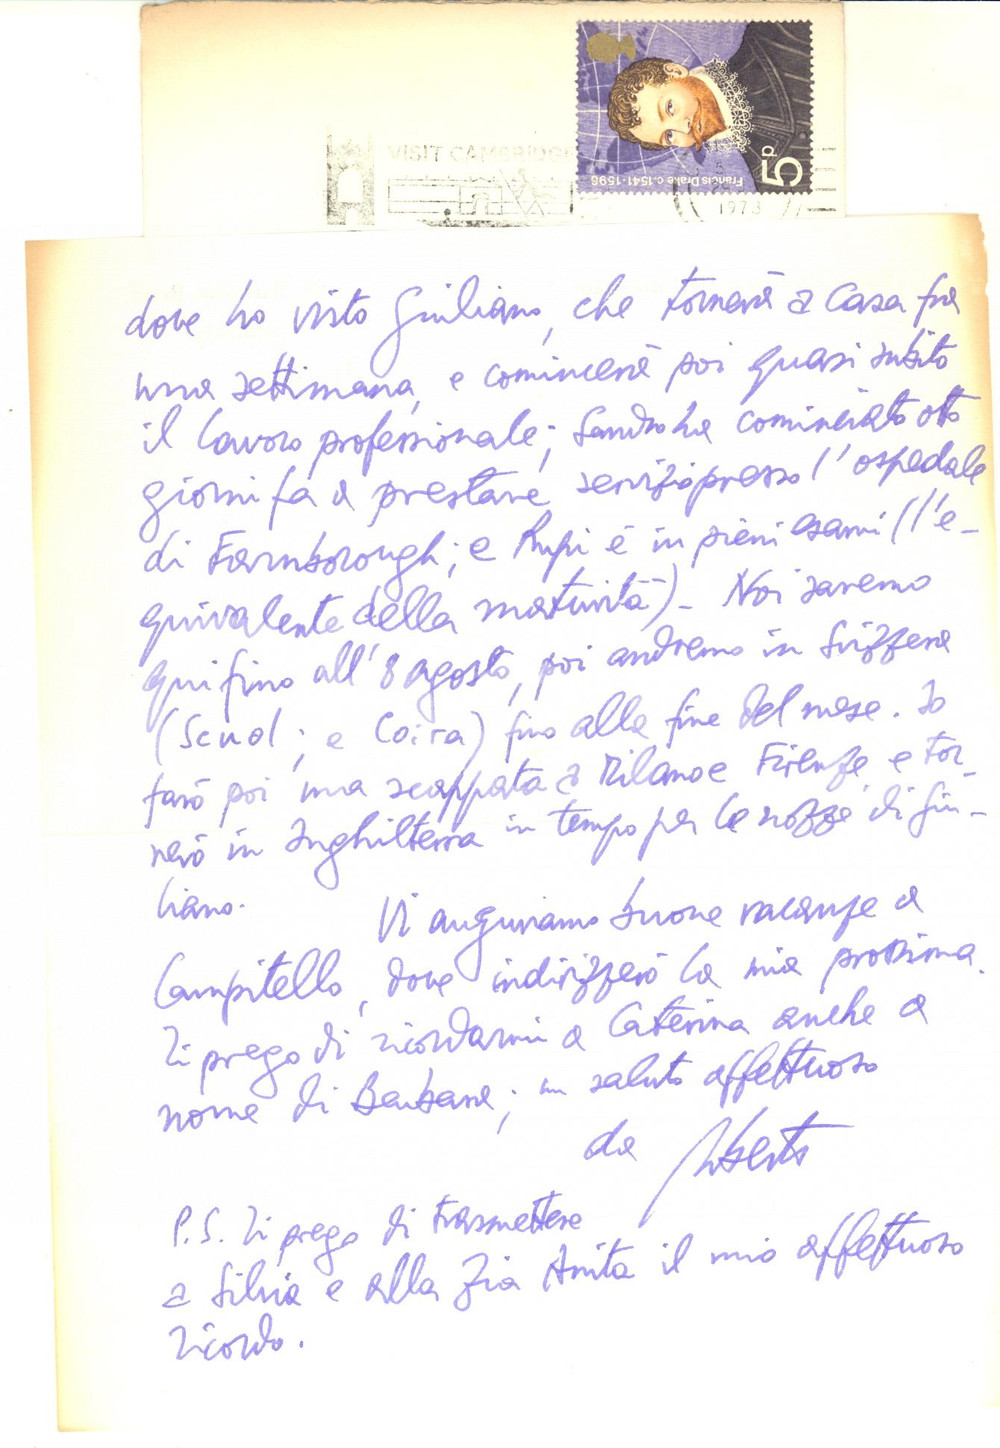 VISIT CAMBRIDGE
5p
Francis Drake c.1541-1596
1973
dove ho visto Giuliano, che tornerà a casa fra
una settimana, e comincerà poi quasi subito
il lavoro professionale; Sandro ha cominciato otto
giorni fa a prestare servizio presso l'ospedale
di Farnborough; e Pupi è in pieni esami (l'e-
quivalente della maturità) - Noi saremo
qui fino all'8 agosto, poi andremo in Svizzera
(Scuol; e Coira) fino alla fine del mese. Io
farò poi una scappata a Milano e Firenze, e tor-
nerò in Inghilterra in tempo per le nozze di Giu-
liano.
Vi auguriamo buone vacanze a
Campitello, dove indirizzerò la mia prossima.
Ti prego di ricordarmi a Caterina anche a
nome di Barbara; un saluto affettuoso
da Uberto
P.S. Ti prego di trasmettere
a Silvia e alla Zia Anita il mio affettuoso
ricordo.